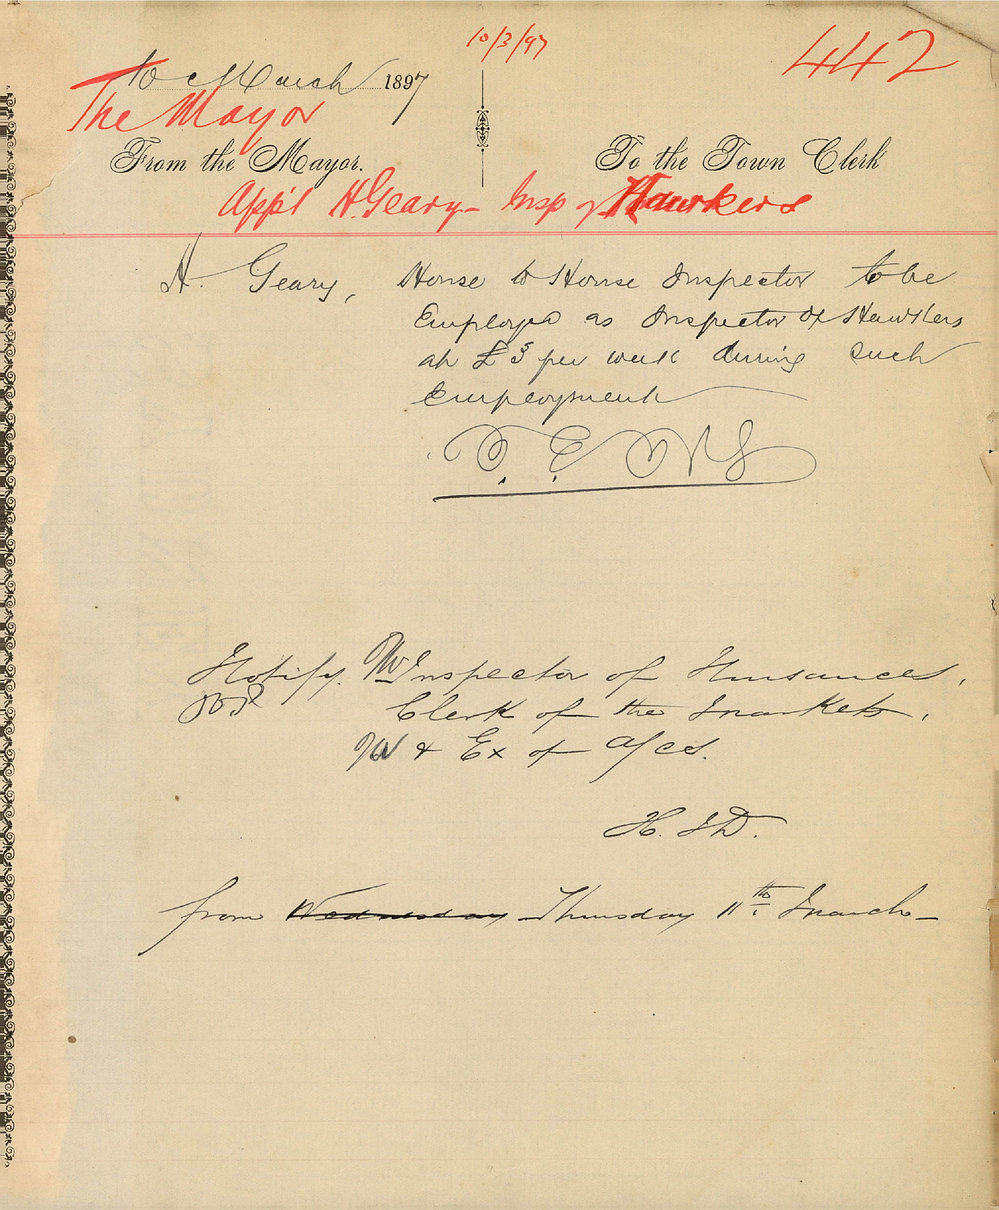 10/3/97
442
10 March 1897
The Mayor
From the Mayor.
To the Town Clerk
App't H. Geary - Insp of Hawkers
H. Geary, House to House Inspector to be
Employed as Inspector of Hawkers
at £3 per week during such
Employment
Notify. Inspector of Nuisances,
Clerk of the Markets,
& Ex of a/cs.
H. J D.
from Wednesday Thursday 11th March -